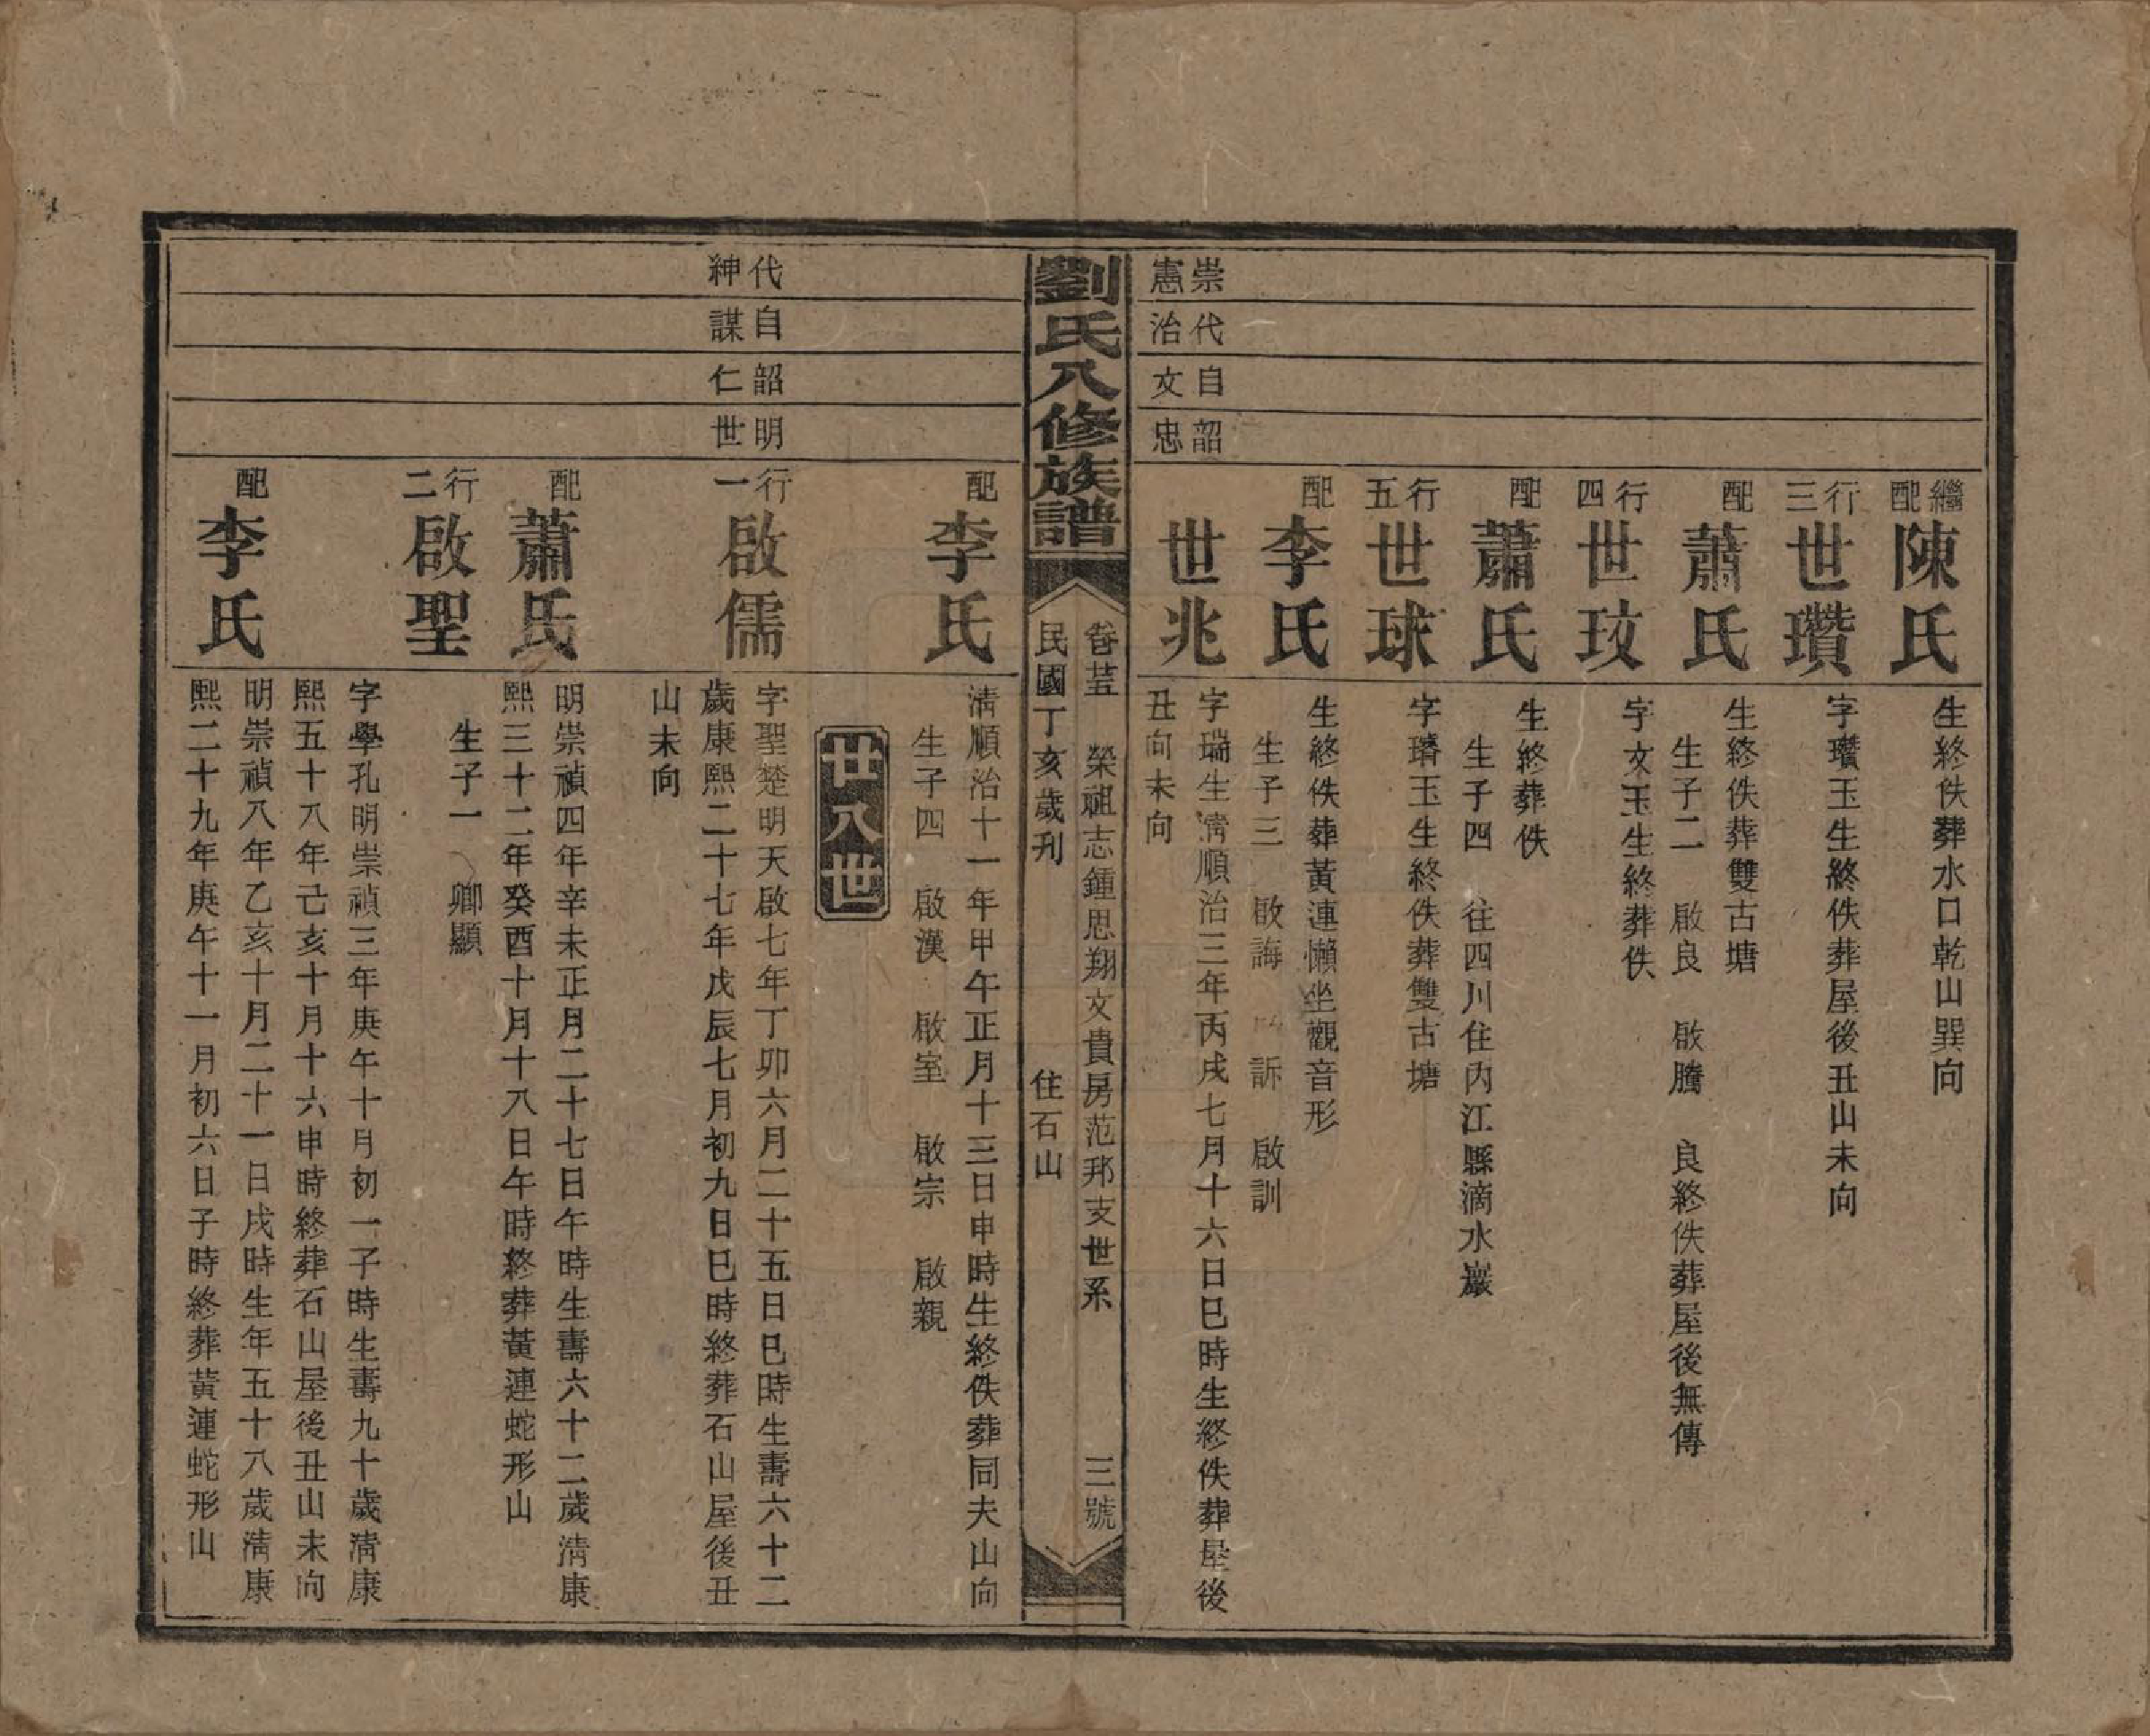 繼配
陳氏
生終佚葬水口乾山巽向
行三
世瓚
字瓚玉生終佚葬屋後丑山未向
配
蕭氏
生終佚葬雙古塘
生子二 啟良 啟騰 良終佚葬屋後無傳
行四
世玟
字文玉生終葬佚
配
蕭氏
生終葬佚
生子四 往四川住內江縣滴水巖
行五
世球
字璿玉生終佚葬雙古塘
配
李氏
生終佚葬黃連懶坐觀音形
生子三 啟誨 訴 啟訓
崇代自韶
憲治文忠
世兆
字瑞生清順治三年丙戌七月十六日巳時生終佚葬屋後
丑向未向
劉氏八修族譜
卷苙 榮祖志鍾思翔文貴房范邦支世系 三號
民國丁亥歲刋 住石山
配
李氏
清順治十一年甲午正月十三日申時生終佚葬同夫山向
生子四 啟漢 啟室 啟宗 啟親
廿八世
代自韶明
紳謀仁世
行一
啟儒
字聖楚明天啟七年丁卯六月二十五日巳時生壽六十二
歲康熙二十七年戊辰七月初九日巳時終葬石山屋後丑
山未向
配
蕭氏
明崇禎四年辛未正月二十七日午時生壽六十二歲清康
熙三十二年癸酉十月十八日午時終葬黃連蛇形山
生子一 卿顯
行二
啟聖
字學孔明崇禎三年庚午十月初一子時生壽九十歲清康
熙五十八年己亥十月十六申時終葬石山屋後丑山未向
配
李氏
明崇禎八年乙亥十月二十一日戌時生年五十八歲清康
熙二十九年庚午十一月初六日子時終葬黃連蛇形山